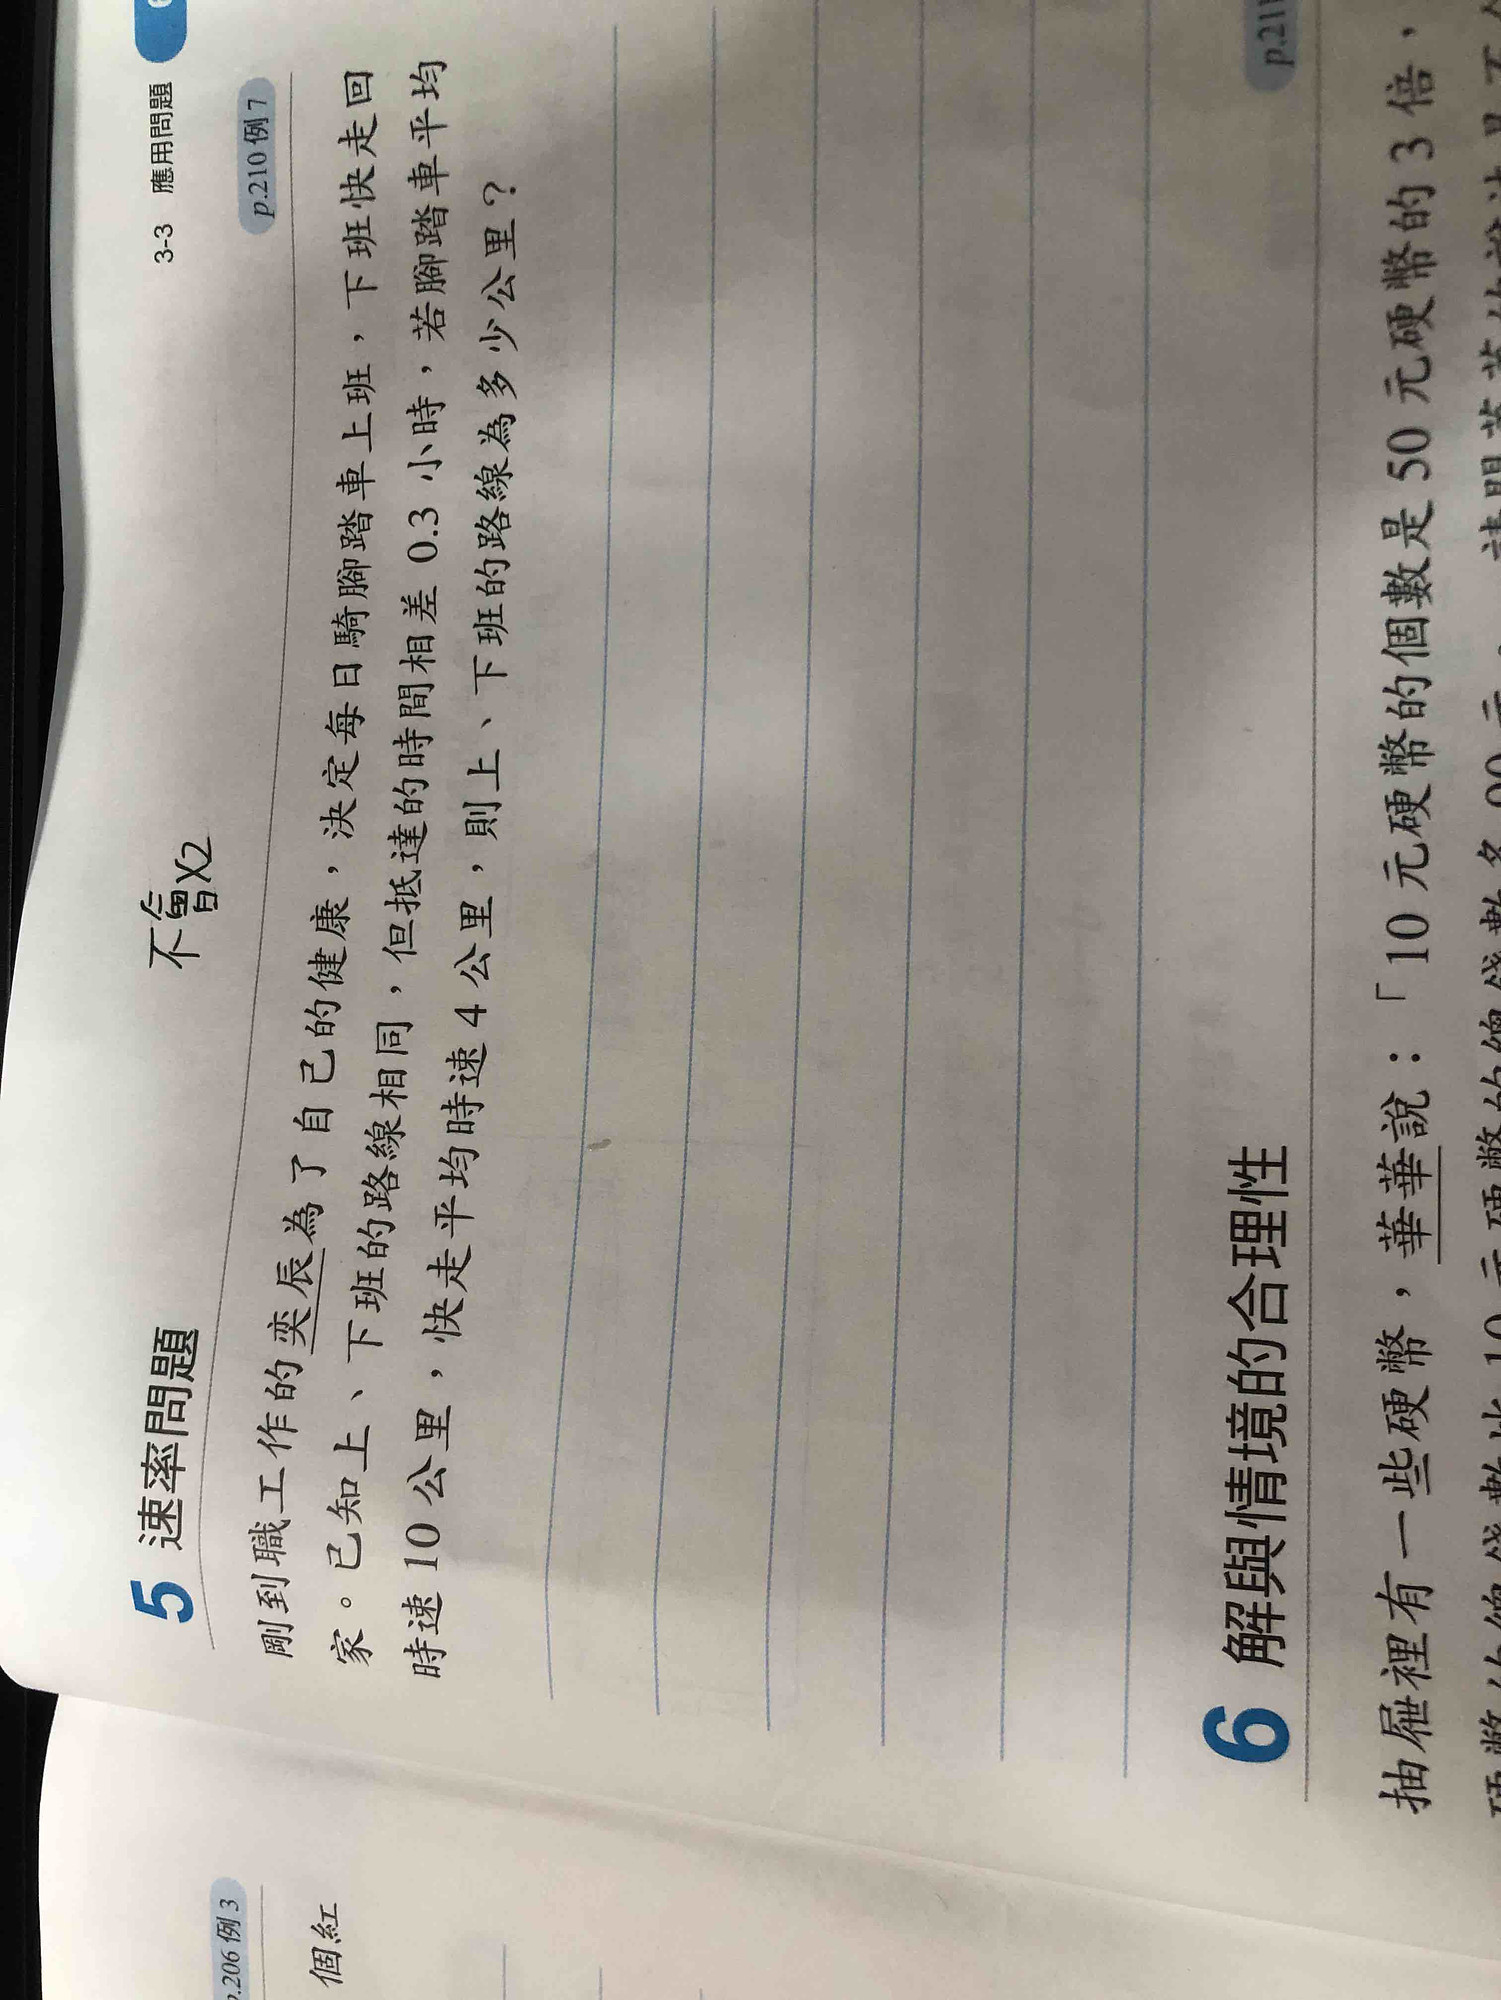 3-3 應用問題
不會X2
5 速率問題
p.210例7
剛到職工作的奕辰為了自己的健康，決定每日騎腳踏車上班，下班快走回
家。已知上、下班的路線相同，但抵達的時間相差 0.3 小時，若腳踏車平均
時速 10 公里，快走平均時速 4 公里，則上、下班的路線為多少公里？
6 解與情境的合理性
p.211
抽屜裡有一些硬幣，華華說：「10 元硬幣的個數是 50 元硬幣的 3 倍，
.206例3
個紅